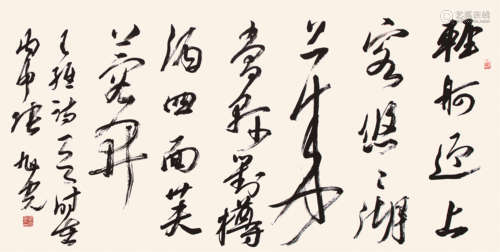 輕舸迎上
客悠々湖
上来
當軒對樽
酒四面芙
蓉開
王維詩一首时在
丙申張旭光